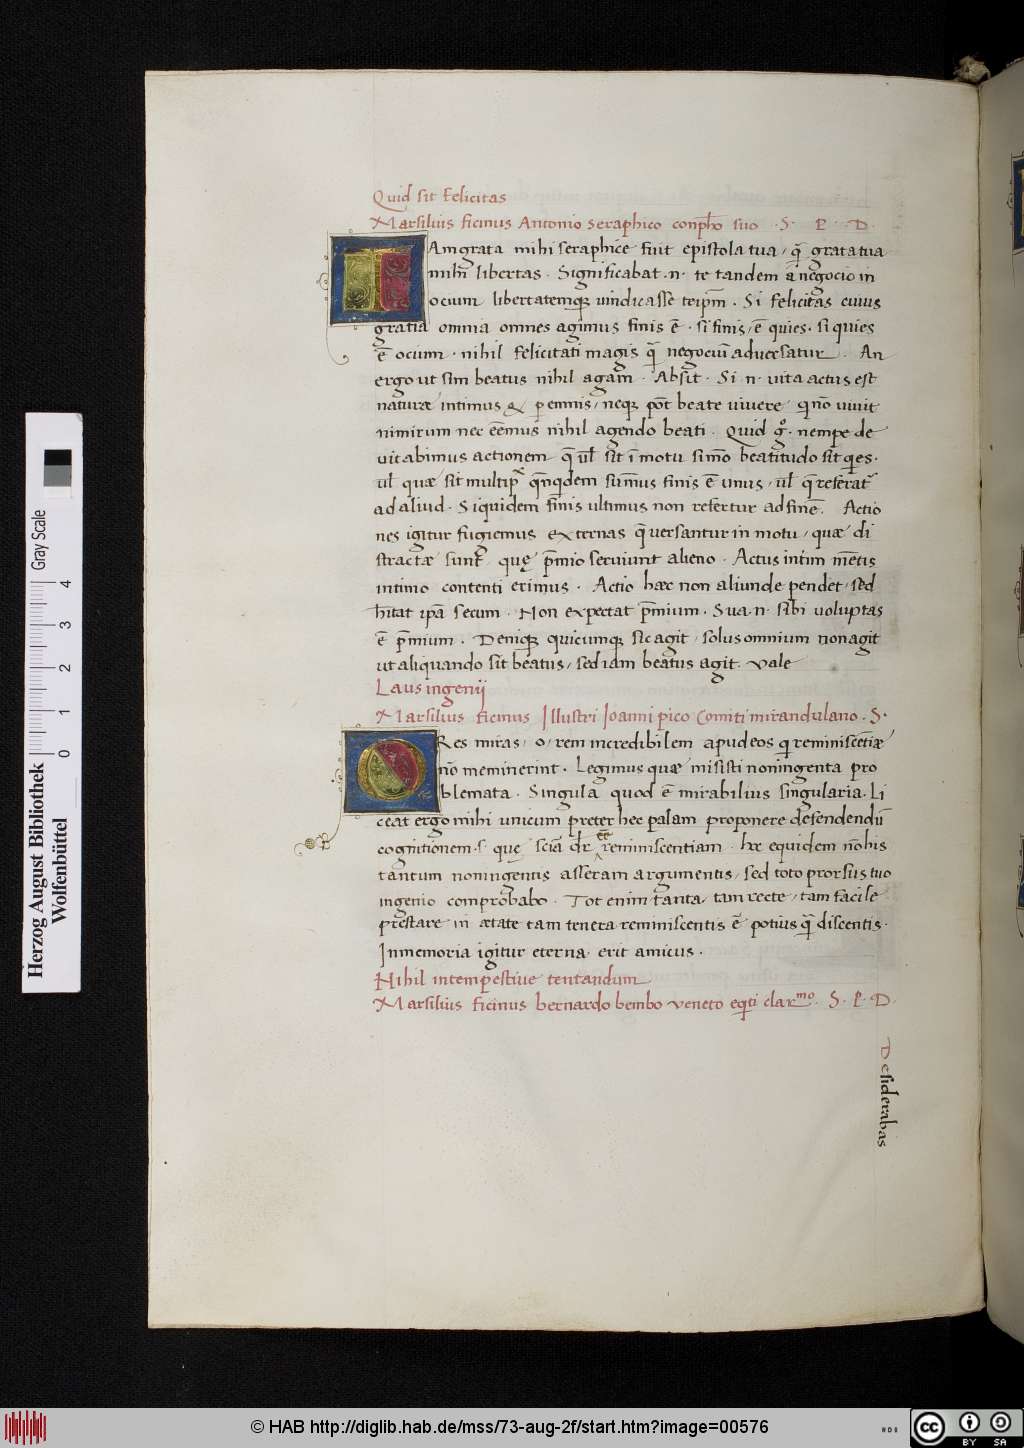 Quid sit Felicitas
Marsilius ficinus Antonio Seraphico conph̄o suo · S · P · D ·
TAm grata mihi seraphice fuit epistola tua, q̄ grata tua
mihi libertas · Significabat · n · te tandem a negocio in
ocium libertatemqꝫ uindicasse teip̄m · Si felicitas cuius
gratia omnia omnes agimus finis ē · si finis, ē quies · si quies
ē ocium · nihil felicitati magis q̄ negociū aduersatur · An
ergo ut sim beatus nihil agam · Absit · Si · n · uita actus est
naturæ intimus & ꝑennis, neqꝫ pōt beate uiuere q nō uiuit
nimirum nec eēmus nihil agendo beati · Quid gͦ · nempe de
uitabimus actionem q̄ ul̄ sit ī motu si mō beatitudo sit qies ·
ul̄ quæ sit multip̄x qn̄qidem sum̄us finis ē unus, ul̄ q̄ referat᷑
ad aliud · Siquidem finis ultimus non refertur ad finē · Actio
nes igitur fugiemus externas q̄ uersantur in motu, quæ di
stractæ sunt, quę p̄mio seruiunt alieno · Actus intim mētis
intimo contenti erimus · Actio hæc non aliunde pendet, sed
h̄itat ip̄a secum · Non expectat p̄mium · Sua · n · sibi uoluptas
ē p̄mium · Deniqꝫ quicumqꝫ sic agit, solus omnium non agit
ut aliquando sit beatus, sed iam beatus agit · Vale
Laus ingenij
Marsilius ficinus Illustri Joanni pico Comiti mirandulano · S ·
ORes miras, o, rem incredibilem apud eos qi reminiscētiæ
nō meminerint · Legimus quæ misisti noningenta pro
blemata · Singula quod ē mirabilius singularia · Li
ceat ergo mihi unicum preter hec palam proponere defendendū
cognitionem · s · quę sciā dr̄ eē reminiscentiam · hæc equidem nō his
tantum noningentis asseram argumentis, sed toto prorsus tuo
ingenio comprobabo · Tot enim tanta, tam recte, tam facile
prestare in ætate tam tenera reminiscentis ē potius q̄ discentis ·
In memoria igitur eterna erit amicus ·
Nihil intempestiue tentandum
Marsilius ficinus bernardo bembo ueneto eqiti clarᵐᵒ · S · P · D ·
Desiderabas
Herzog August Bibliothek
Wolfenbüttel
Gray Scale
0 1 2 3 4
© HAB http://diglib.hab.de/mss/73-aug-2f/start.htm?image=00576
cc BY SA